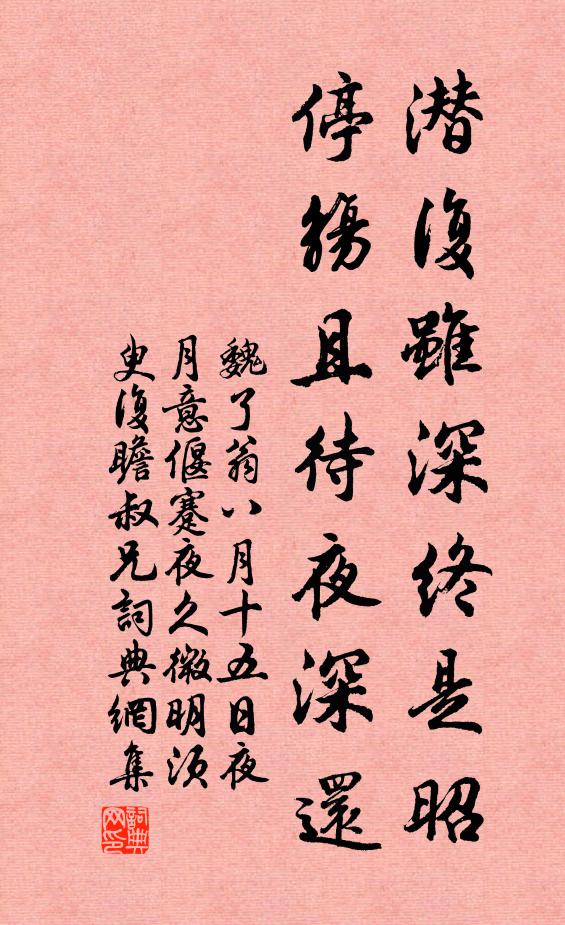 潛復雖深終是昭
停觴且待夜深還
魏了翁八月十五日夜
月意偃蹇夜久微明須
臾復瞻叔兄詞典網集
詞典网印